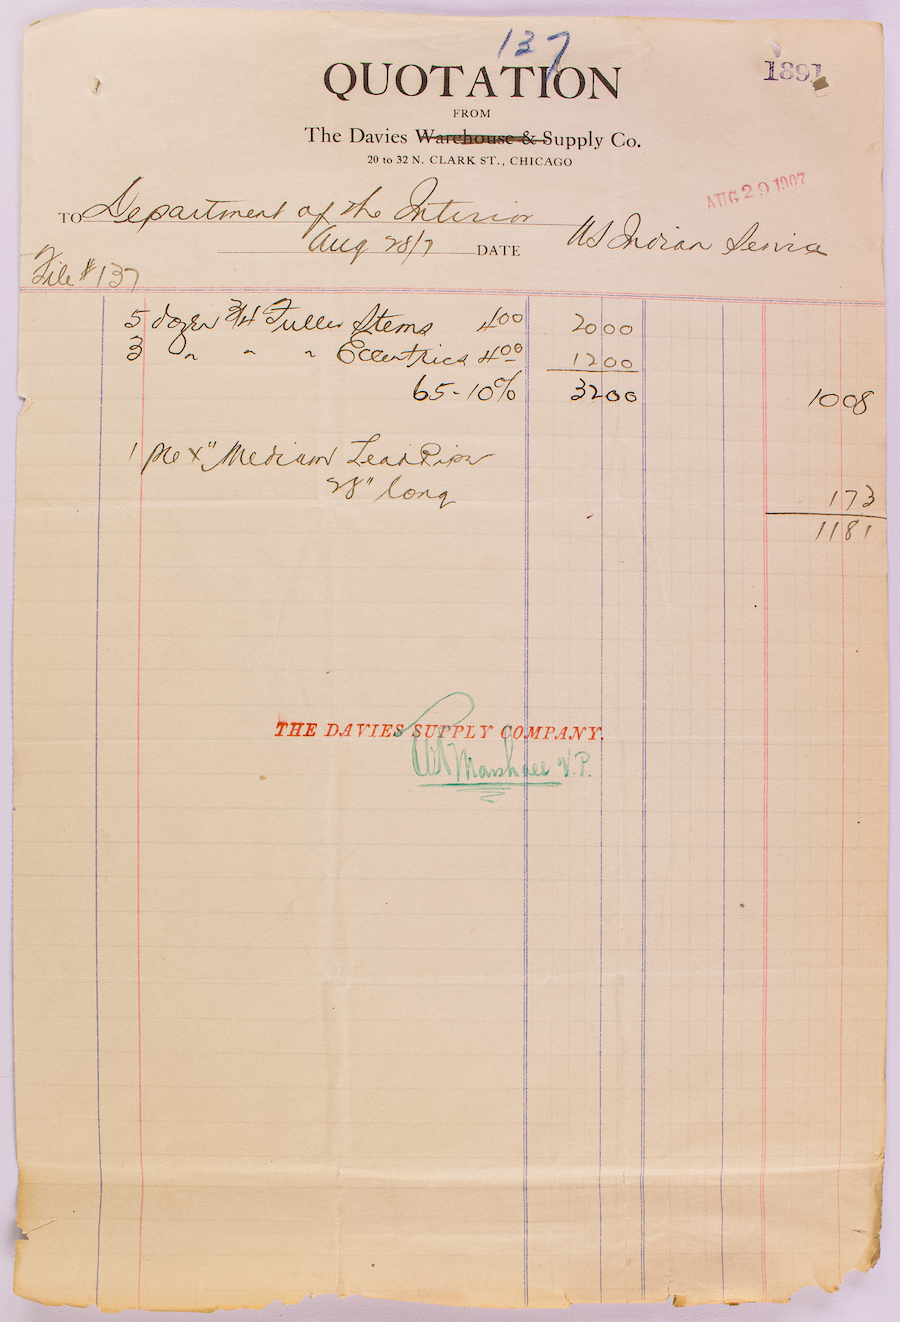 137
1891
QUOTATION
FROM
The Davies Warehouse & Supply Co.
20 to 32 N. CLARK ST., CHICAGO
AUG 29 1907
TO Department of the Interior
Aug 28/7 DATE US Indian Service
File #137
5 dozen 3/4 Fuller Stems 4 00 20 00
3 " " " Eccentrics 4 00 12 00
65-10% 32 00 10 08
1 pce x" Medium Lead Pipe
28" long 1 73
11 81
THE DAVIES SUPPLY COMPANY.
Marshall V.P.